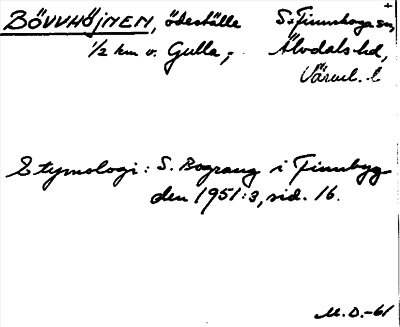 BÖVVHÖJNEN, ödeställe S. Finnskoga sn,
½ km v. Gulla,- Älvdals hd,
Värml. l
Etymologi: S. Bograng i Finnbyg-
den 1951:3, sid. 16.
M.D.-61